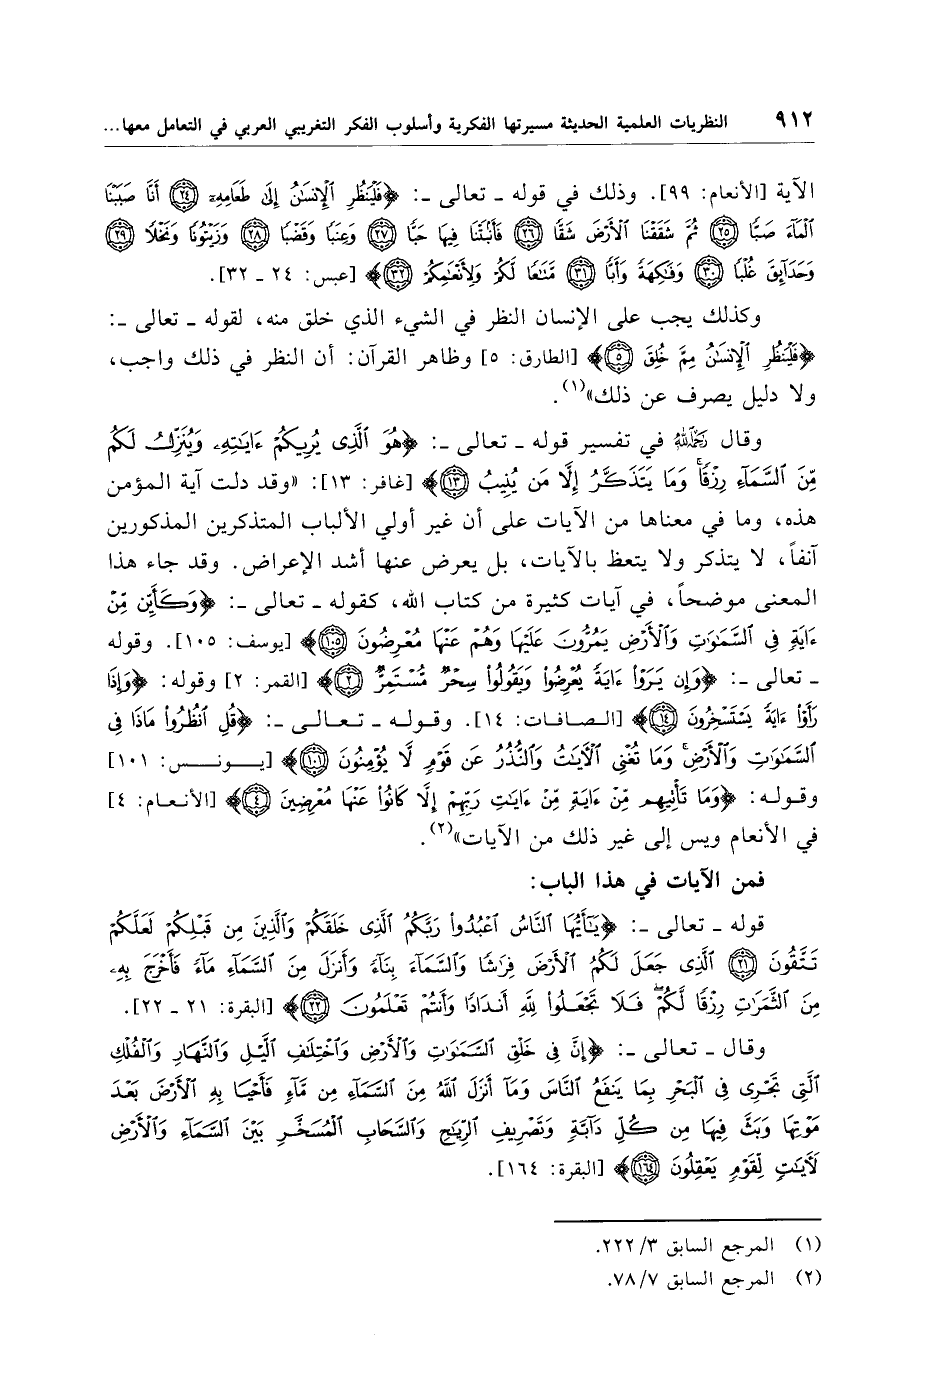 ٩١٢ النظريات العلمية الحديثة مسيرتها الفكرية وأسلوب الفكر التغريبي العربي في التعامل معها...
الآية [الأنعام: ٩٩]. وذلك في قوله ـ تعالى ـ: ﴿فَلْيَنظُرِ ٱلْإِنسَٰنُ إِلَىٰ طَعَامِهِۦٓ ٢٤ أَنَّا صَبَبْنَا
ٱلْمَآءَ صَبًّا ٢٥ ثُمَّ شَقَقْنَا ٱلْأَرْضَ شَقًّا ٢٦ فَأَنۢبَتْنَا فِيهَا حَبًّا ٢٧ وَعِنَبًا وَقَضْبًا ٢٨ وَزَيْتُونًا وَنَخْلًا ٢٩
وَحَدَآئِقَ غُلْبًا ٣٠ وَفَٰكِهَةً وَأَبًّا ٣١ مَّتَٰعًا لَّكُمْ وَلِأَنْعَٰمِكُمْ ٣٢﴾ [عبس: ٢٤ ـ ٣٢].
وكذلك يجب على الإنسان النظر في الشيء الذي خلق منه، لقوله ـ تعالى ـ:
﴿فَلْيَنظُرِ ٱلْإِنسَٰنُ مِمَّ خُلِقَ ٥﴾ [الطارق: ٥] وظاهر القرآن: أن النظر في ذلك واجب،
ولا دليل يصرف عن ذلك»(١).
وقال رحمه الله في تفسير قوله ـ تعالى ـ: ﴿هُوَ ٱلَّذِى يُرِيكُمْ ءَايَٰتِهِۦ وَيُنَزِّلُ لَكُم
مِّنَ ٱلسَّمَآءِ رِزْقًا ۚ وَمَا يَتَذَكَّرُ إِلَّا مَن يُنِيبُ ١٣﴾ [غافر: ١٣]: «وقد دلت آية المؤمن
هذه، وما في معناها من الآيات على أن غير أولي الألباب المتذكرين المذكورين
آنفاً، لا يتذكر ولا يتعظ بالآيات، بل يعرض عنها أشد الإعراض. وقد جاء هذا
المعنى موضحاً، في آيات كثيرة من كتاب الله، كقوله ـ تعالى ـ: ﴿وَكَأَيِّن مِّنْ
ءَايَةٍ فِى ٱلسَّمَٰوَٰتِ وَٱلْأَرْضِ يَمُرُّونَ عَلَيْهَا وَهُمْ عَنْهَا مُعْرِضُونَ ١٠٥﴾ [يوسف: ١٠٥]. وقوله
ـ تعالى ـ: ﴿وَإِن يَرَوْا۟ ءَايَةً يُعْرِضُوا۟ وَيَقُولُوا۟ سِحْرٌ مُّسْتَمِرٌّ ٢﴾ [القمر: ٢] وقوله: ﴿وَإِذَا
رَأَوْا۟ ءَايَةً يَسْتَسْخِرُونَ ١٤﴾ [الصافات: ١٤]. وقوله ـ تعالى ـ: ﴿قُلِ ٱنظُرُوا۟ مَاذَا فِى
ٱلسَّمَٰوَٰتِ وَٱلْأَرْضِ ۚ وَمَا تُغْنِى ٱلْءَايَٰتُ وَٱلنُّذُرُ عَن قَوْمٍ لَّا يُؤْمِنُونَ ١٠١﴾ [يونس: ١٠١]
وقوله: ﴿وَمَا تَأْتِيهِم مِّنْ ءَايَةٍ مِّنْ ءَايَٰتِ رَبِّهِمْ إِلَّا كَانُوا۟ عَنْهَا مُعْرِضِينَ ٤﴾ [الأنعام: ٤]
في الأنعام ويس إلى غير ذلك من الآيات»(٢).
فمن الآيات في هذا الباب:
قوله ـ تعالى ـ: ﴿يَٰٓأَيُّهَا ٱلنَّاسُ ٱعْبُدُوا۟ رَبَّكُمُ ٱلَّذِى خَلَقَكُمْ وَٱلَّذِينَ مِن قَبْلِكُمْ لَعَلَّكُمْ
تَتَّقُونَ ٢١ ٱلَّذِى جَعَلَ لَكُمُ ٱلْأَرْضَ فِرَٰشًا وَٱلسَّمَآءَ بِنَآءً وَأَنزَلَ مِنَ ٱلسَّمَآءِ مَآءً فَأَخْرَجَ بِهِۦ
مِنَ ٱلثَّمَرَٰتِ رِزْقًا لَّكُمْ ۖ فَلَا تَجْعَلُوا۟ لِلَّهِ أَندَادًا وَأَنتُمْ تَعْلَمُونَ ٢٢﴾ [البقرة: ٢١ ـ ٢٢].
وقال ـ تعالى ـ: ﴿إِنَّ فِى خَلْقِ ٱلسَّمَٰوَٰتِ وَٱلْأَرْضِ وَٱخْتِلَٰفِ ٱلَّيْلِ وَٱلنَّهَارِ وَٱلْفُلْكِ
ٱلَّتِى تَجْرِى فِى ٱلْبَحْرِ بِمَا يَنفَعُ ٱلنَّاسَ وَمَآ أَنزَلَ ٱللَّهُ مِنَ ٱلسَّمَآءِ مِن مَّآءٍ فَأَحْيَا بِهِ ٱلْأَرْضَ بَعْدَ
مَوْتِهَا وَبَثَّ فِيهَا مِن كُلِّ دَآبَّةٍ وَتَصْرِيفِ ٱلرِّيَٰحِ وَٱلسَّحَابِ ٱلْمُسَخَّرِ بَيْنَ ٱلسَّمَآءِ وَٱلْأَرْضِ
لَءَايَٰتٍ لِّقَوْمٍ يَعْقِلُونَ ١٦٤﴾ [البقرة: ١٦٤].
(١) المرجع السابق ٣/ ٢٢٢.
(٢) المرجع السابق ٧/ ٧٨.